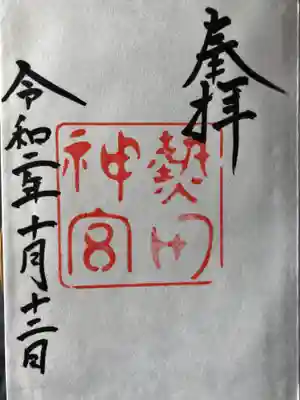 奉拝
熱田
神宮
令和二年十月十二日